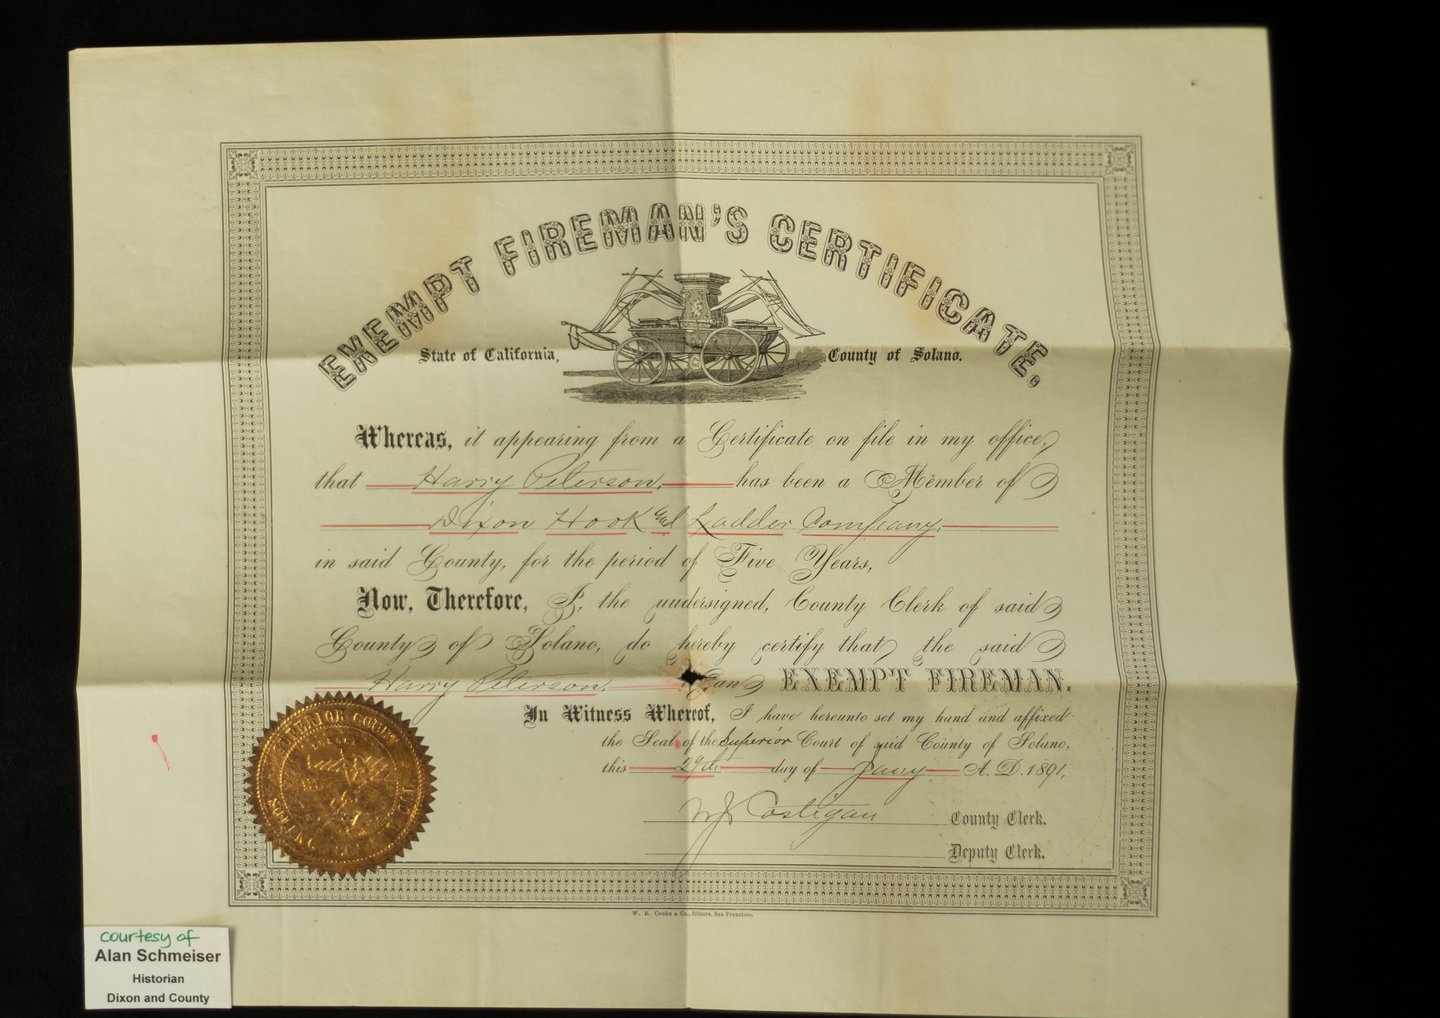 EXEMPT FIREMAN'S CERTIFICATE.
State of California, County of Solano.
Whereas, it appearing from a Certificate on file in my office,
that Harry Peterson, has been a Member of
Dixon Hook and Ladder Company,
in said County, for the period of Five Years,
Now, Therefore, I, the undersigned, County Clerk of said
County of Solano, do hereby certify that the said
Harry Peterson. an EXEMPT FIREMAN.
In Witness Whereof, I have hereunto set my hand and affixed
the Seal of the Superior Court of said County of Solano,
this 29th day of Jany A. D. 1891.
Costigan County Clerk.
Deputy Clerk.
SUPERIOR COURT
W. B. Cooke & Co., Printers, San Francisco.
courtesy of
Alan Schmeiser
Historian
Dixon and County